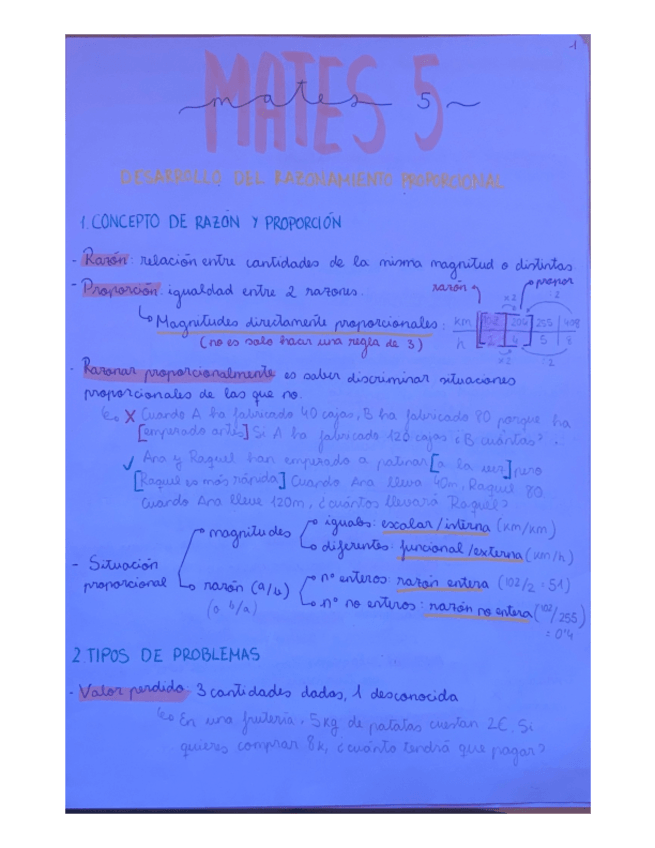 -1
MATES 5
mates 5
DESARROLLO DEL RAZONAMIENTO PROPORCIONAL
1. CONCEPTO DE RAZÓN Y PROPORCIÓN
- Razón: relación entre cantidades de la misma magnitud o distintas
- Proporción: igualdad entre 2 razones.
razón
propor
x2
:2
Magnitudes directamente proporcionales:
km 102 204 255 408
(no es solo hacer una regla de 3)
h 2 4 5 8
x2
:2
- Razonar proporcionalmente es saber discriminar situaciones
proporcionales de las que no.
X Cuando A ha fabricado 40 cajas, B ha fabricado 80 porque ha
[empezado antes] Si A ha fabricado 120 cajas ¿B cuántas?
✓ Ana y Raquel han empezado a patinar [a la vez] pero
[Raquel es más rápida] Cuando Ana lleva 40m, Raquel 80
Cuando Ana lleve 120m, ¿cuántos llevará Raquel?
- Situación proporcional
magnitudes
iguales: escalar/interna (km/km)
diferentes: funcional/externa (km/h)
razón (a/b)
(o b/a)
nº enteros: razón entera (102/2 = 51)
nº no enteros: razón no entera (102/255)
= 0'4
2. TIPOS DE PROBLEMAS
- Valor perdido: 3 cantidades dadas, 1 desconocida
En una frutería, 5kg de patatas cuestan 2€. Si
quieres comprar 8k, ¿cuánto tendrá que pagar?